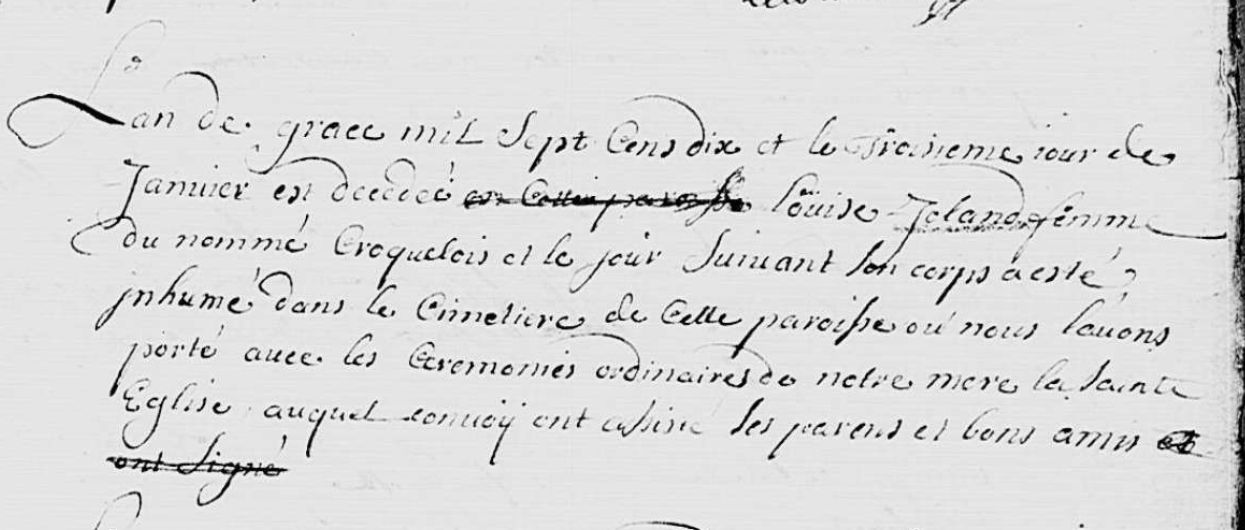 Lan de grace mil Sept Cens dix et le Troisieme iour de
Januier est decedeé en Cette paroisse loüise Joland femme
du nommé Croquelois et le jour Suiuant Son corps a esté
jnhumé dans le Cimetiere de Cette paroisse ou nous lauons
porté auec les Ceremonies ordinaires de notre mere la Sainte
Eglise auquel conuoÿ ont assisté Ses parens et bons amis et
ont Signé